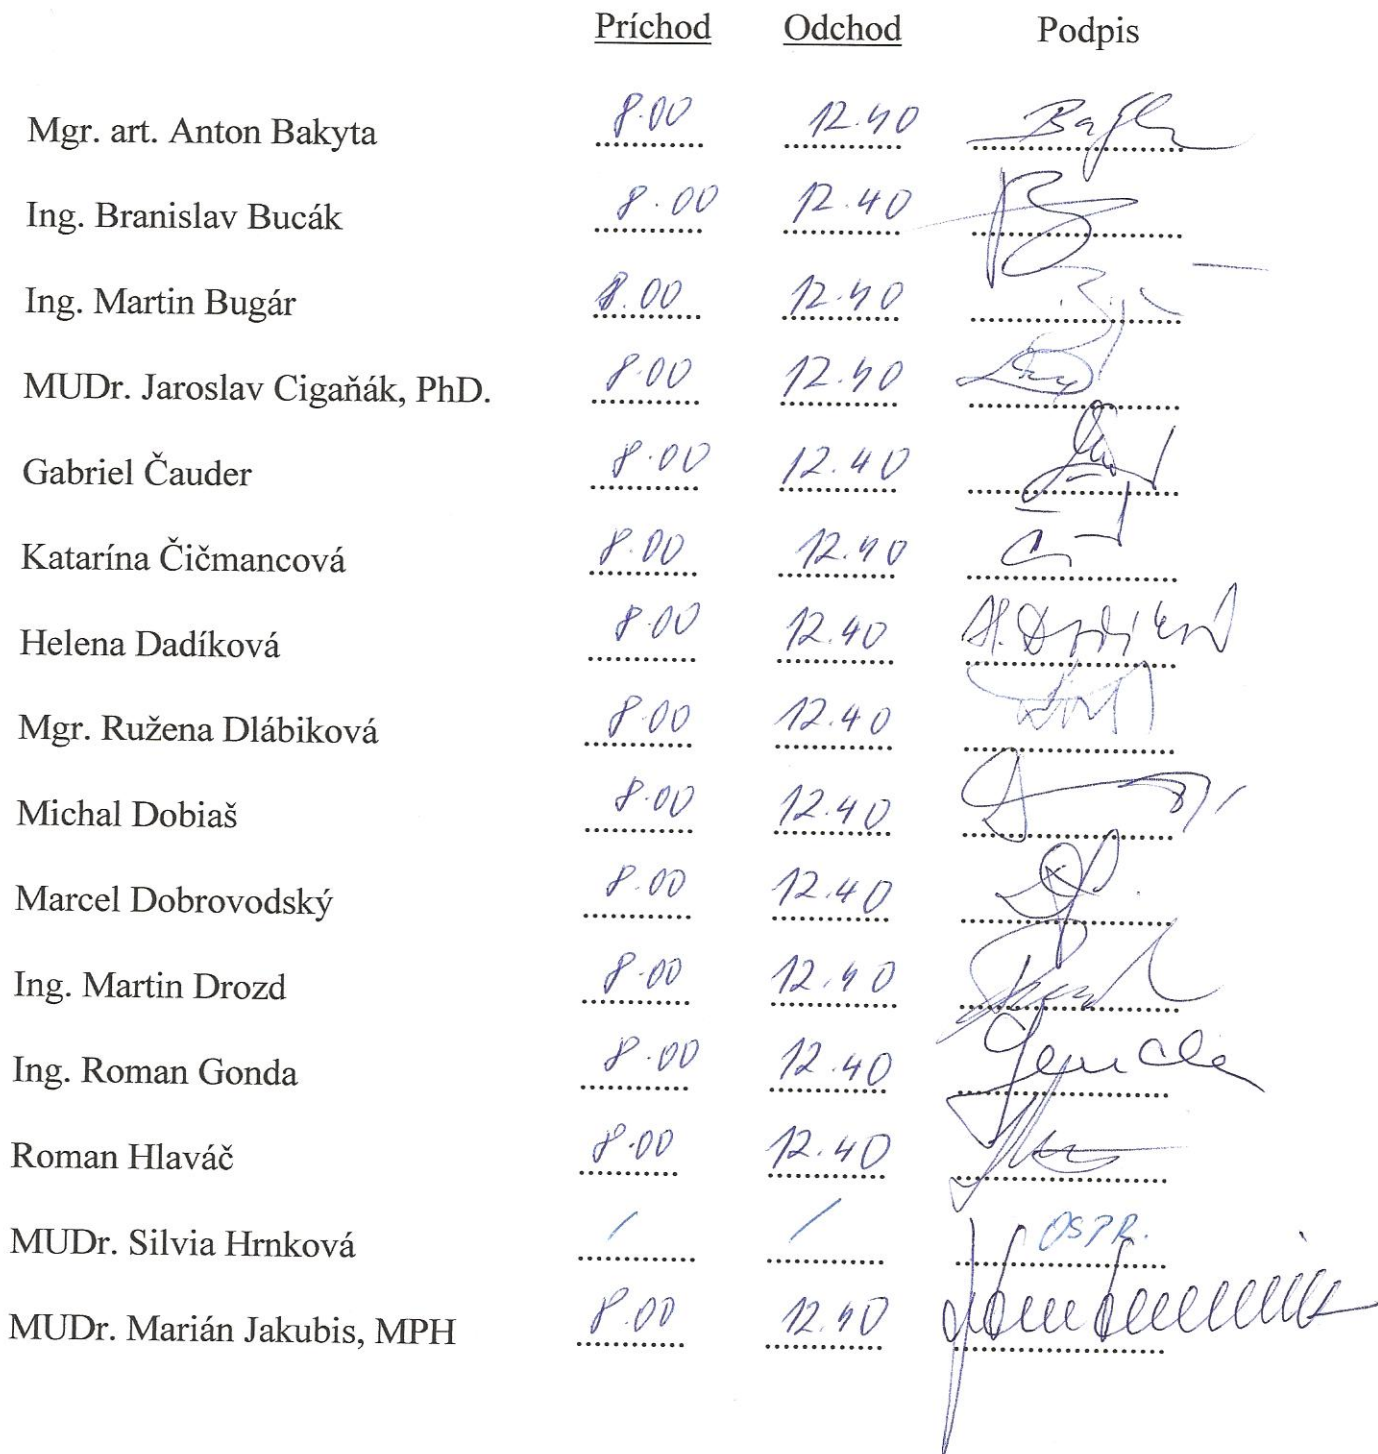 Príchod Odchod Podpis
Mgr. art. Anton Bakyta 8.00 12.40
Ing. Branislav Bucák 8.00 12.40
Ing. Martin Bugár 8.00 12.40
MUDr. Jaroslav Cigaňák, PhD. 8.00 12.40
Gabriel Čauder 8.00 12.40
Katarína Čičmancová 8.00 12.40
Helena Dadíková 8.00 12.40 H. Dadíková
Mgr. Ružena Dlábiková 8.00 12.40
Michal Dobiaš 8.00 12.40
Marcel Dobrovodský 8.00 12.40
Ing. Martin Drozd 8.00 12.40
Ing. Roman Gonda 8.00 12.40
Roman Hlaváč 8.00 12.40
MUDr. Silvia Hrnková / / OSPR.
MUDr. Marián Jakubis, MPH 8.00 12.40